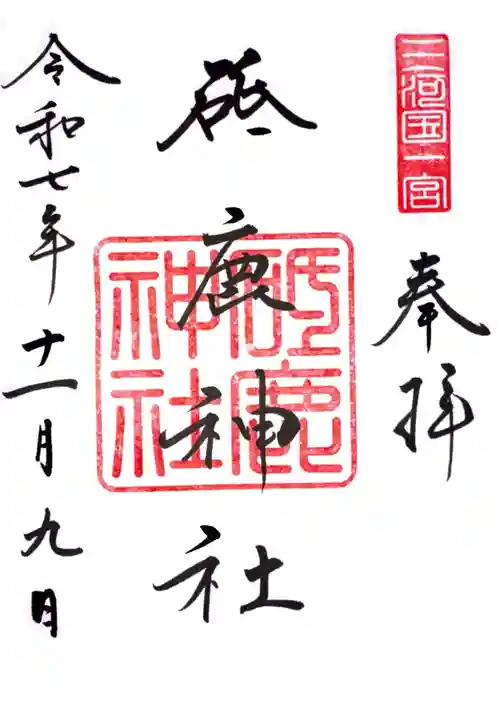 三河国一宮
奉拝
砥鹿神社
砥鹿神社
令和七年十一月九日